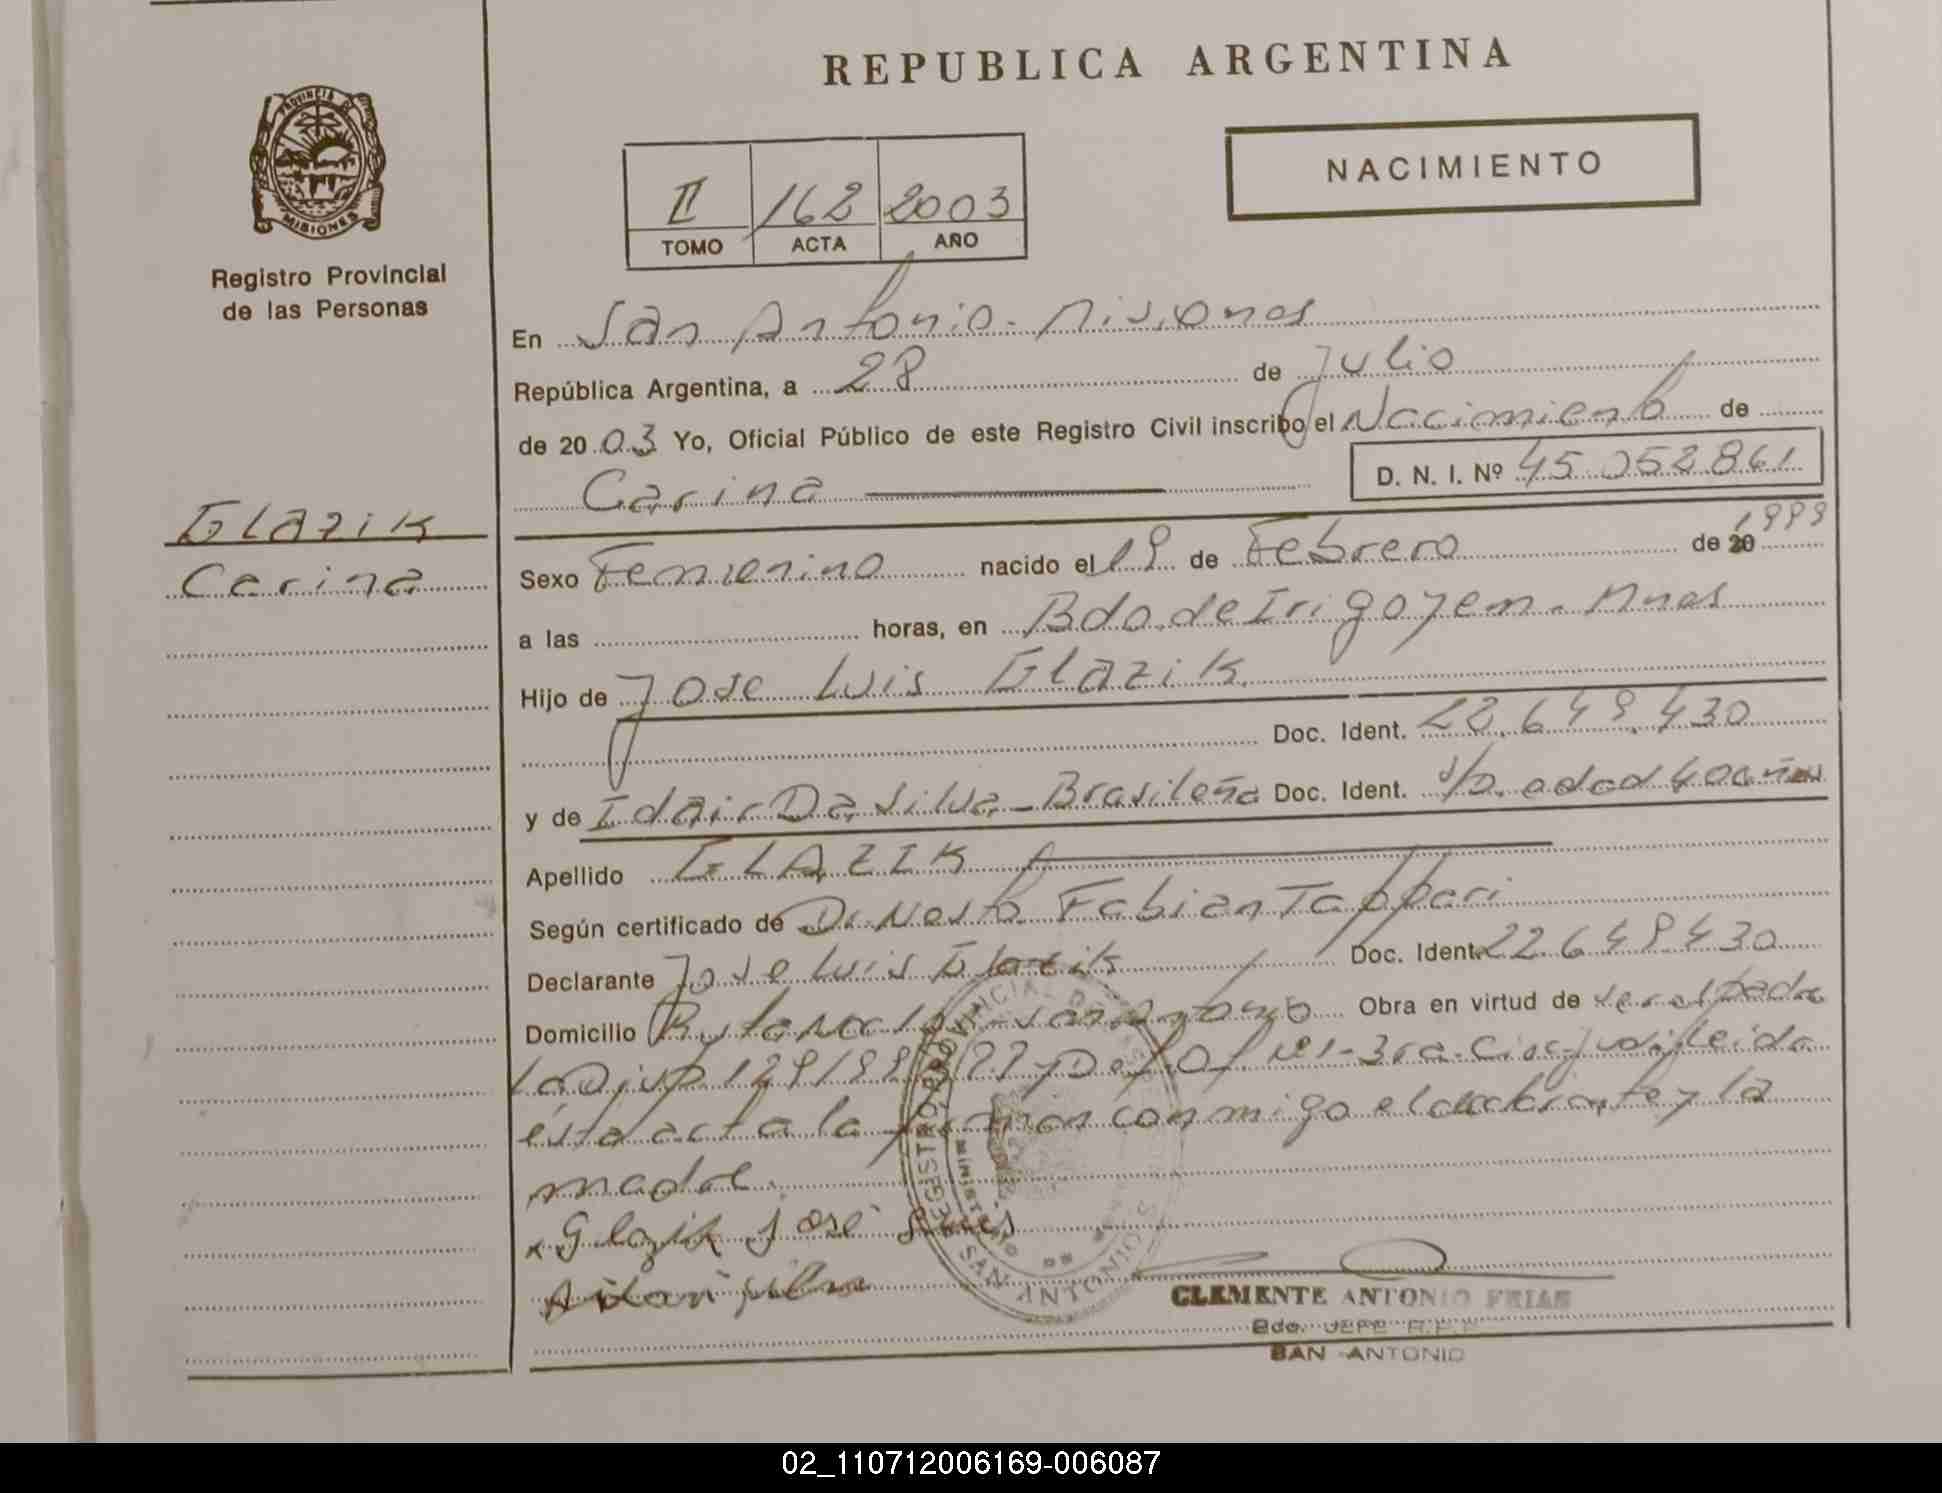 REPUBLICA ARGENTINA
PROVINCIA DE
MISIONES
Registro Provincial
de las Personas
NACIMIENTO
II 162 2003
TOMO ACTA AÑO
En San Antonio - Misiones
República Argentina, a 28 de Julio
de 20 03 Yo, Oficial Público de este Registro Civil inscribo el Nacimiento de
Carina D. N. I. Nº 45.052.861
Glazik
Carina
Sexo Femenino nacido el 19 de Febrero de 20 1999
a las horas, en Bdo. de Irigoyem - Mnes
Hijo de Jose Luis Glazik
Doc. Ident. 22.649.430
y de Idair Da Silva - Brasileña Doc. Ident. s/p. edad 40 años
Apellido GLAZIK
Según certificado de Dr. Nesto Fabian Tappari
Declarante Jose Luis Glazik Doc. Ident. 22649430
Domicilio San Antonio Obra en virtud de ser el padre
La Disp 129/99 y Def. Of. Nº 1 - 3ra. leida
ésta acta la conmigo el declarante y la
madre.
x Glazik josé
silva
REGISTRO PROVINCIAL DE
MINISTERIO
SAN ANTONIO
CLEMENTE ANTONIO FRIAS
Edo. JEFE R.P.P.
SAN ANTONIO
02_110712006169-006087